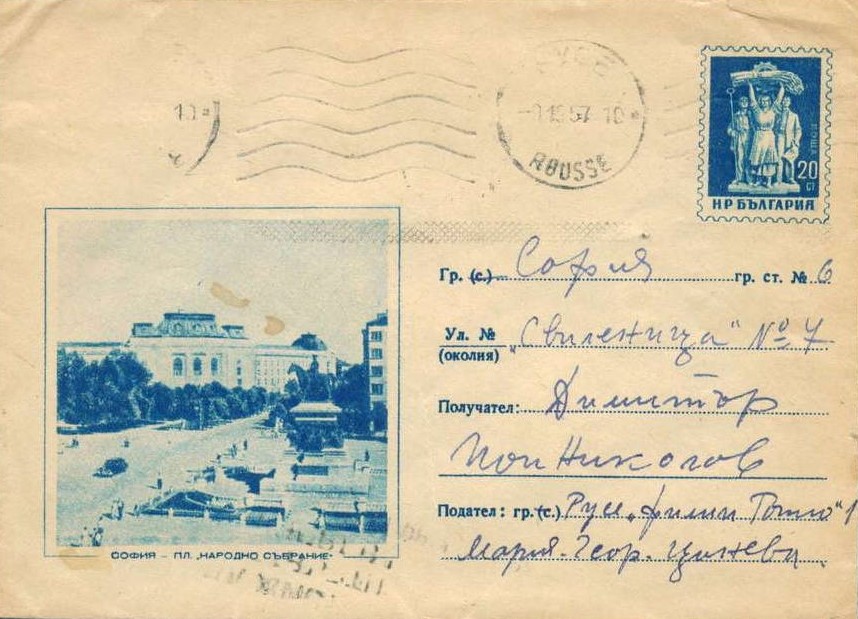 РУСЕ
10
-1 10 57 10
ROUSSE
20
СТ
НР БЪЛГАРИЯ
Гр. (с.) София гр. ст. № 6
Ул. № „Свиленица" № 7
(околия)
Получател: Димитър
Поп Николов
Подател: гр. (с.) Русе „Филип Тотю" 1
Мария Геор. Цинжева
СОФИЯ – ПЛ. „НАРОДНО СЪБРАНИЕ"